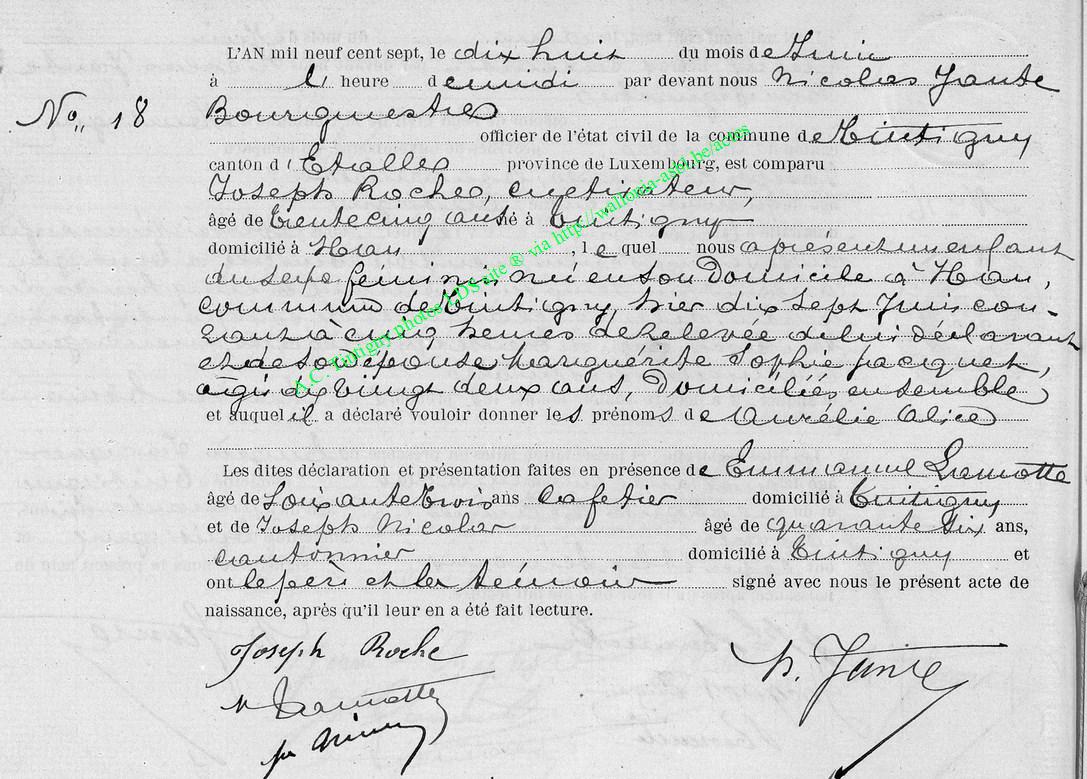 L'AN mil neuf cent sept, le dix huit du mois de Juin
à l' heure de midi par devant nous Nicolas Jante
No. 18 Bourgmestre
officier de l'état civil de la commune de Tintigny
canton d'Etalle province de Luxembourg, est comparu
Joseph Roche, cultivateur,
âgé de trente cinq ans né à Tintigny
domicilié à Han, lequel nous a présenté un enfant
du sexe féminin né en son domicile à Han,
commune de Tintigny, hier dix sept Juin cou-
rant à cinq heures de relevée de lui déclarant
et de son épouse Marguérite Sophie Jacquet,
âgée de vingt deux ans, domiciliés ensemble
et auquel il a déclaré vouloir donner les prénoms de Aurélie Alice
Les dites déclaration et présentation faites en présence de Emmanuel Lamotte
âgé de Soixante trois ans Cafetier domicilié à Tintigny
et de Joseph Nicolas âgé de quarante six ans,
cantonnier domicilié à Tintigny et
ont le père et les témoins signé avec nous le présent acte de
naissance, après qu'il leur en a été fait lecture.
Joseph Roche
N. Jante
Lamotte
A.C. Tintigny photos LDS site ® via http://wallonia-asel.be/actes